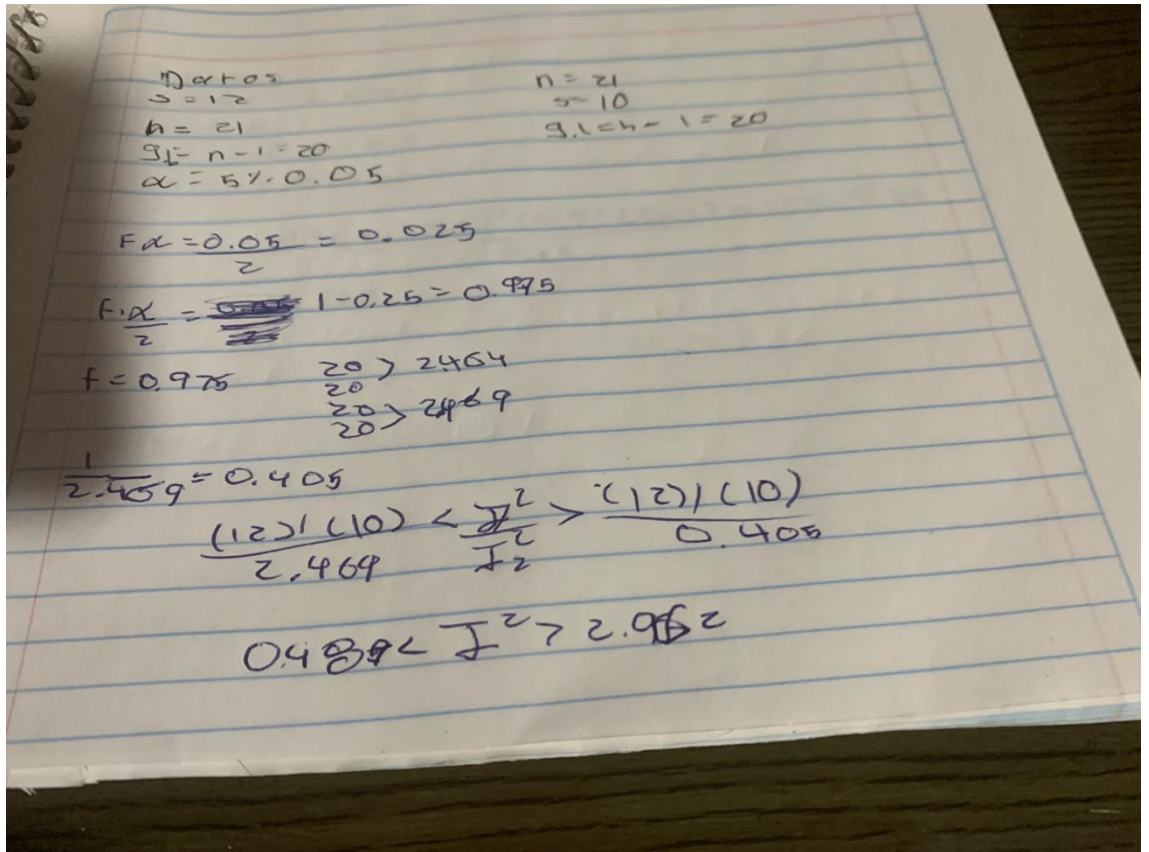 Datos n = 21
s = 12 s = 10
n = 21 g.l = n - 1 = 20
gl = n - 1 = 20
α = 5%. 0.05
Fα = 0.05/2 = 0.025
F.α/2 = 1 - 0.25 = 0.975
f = 0.975 20/20 > 2.464
20/20 > 2.469
1/2.469 = 0.405
(12)/(10)/2.464 < σ²/σ²₂ > (12)/(10)/0.405
0.489 < σ² > 2.962